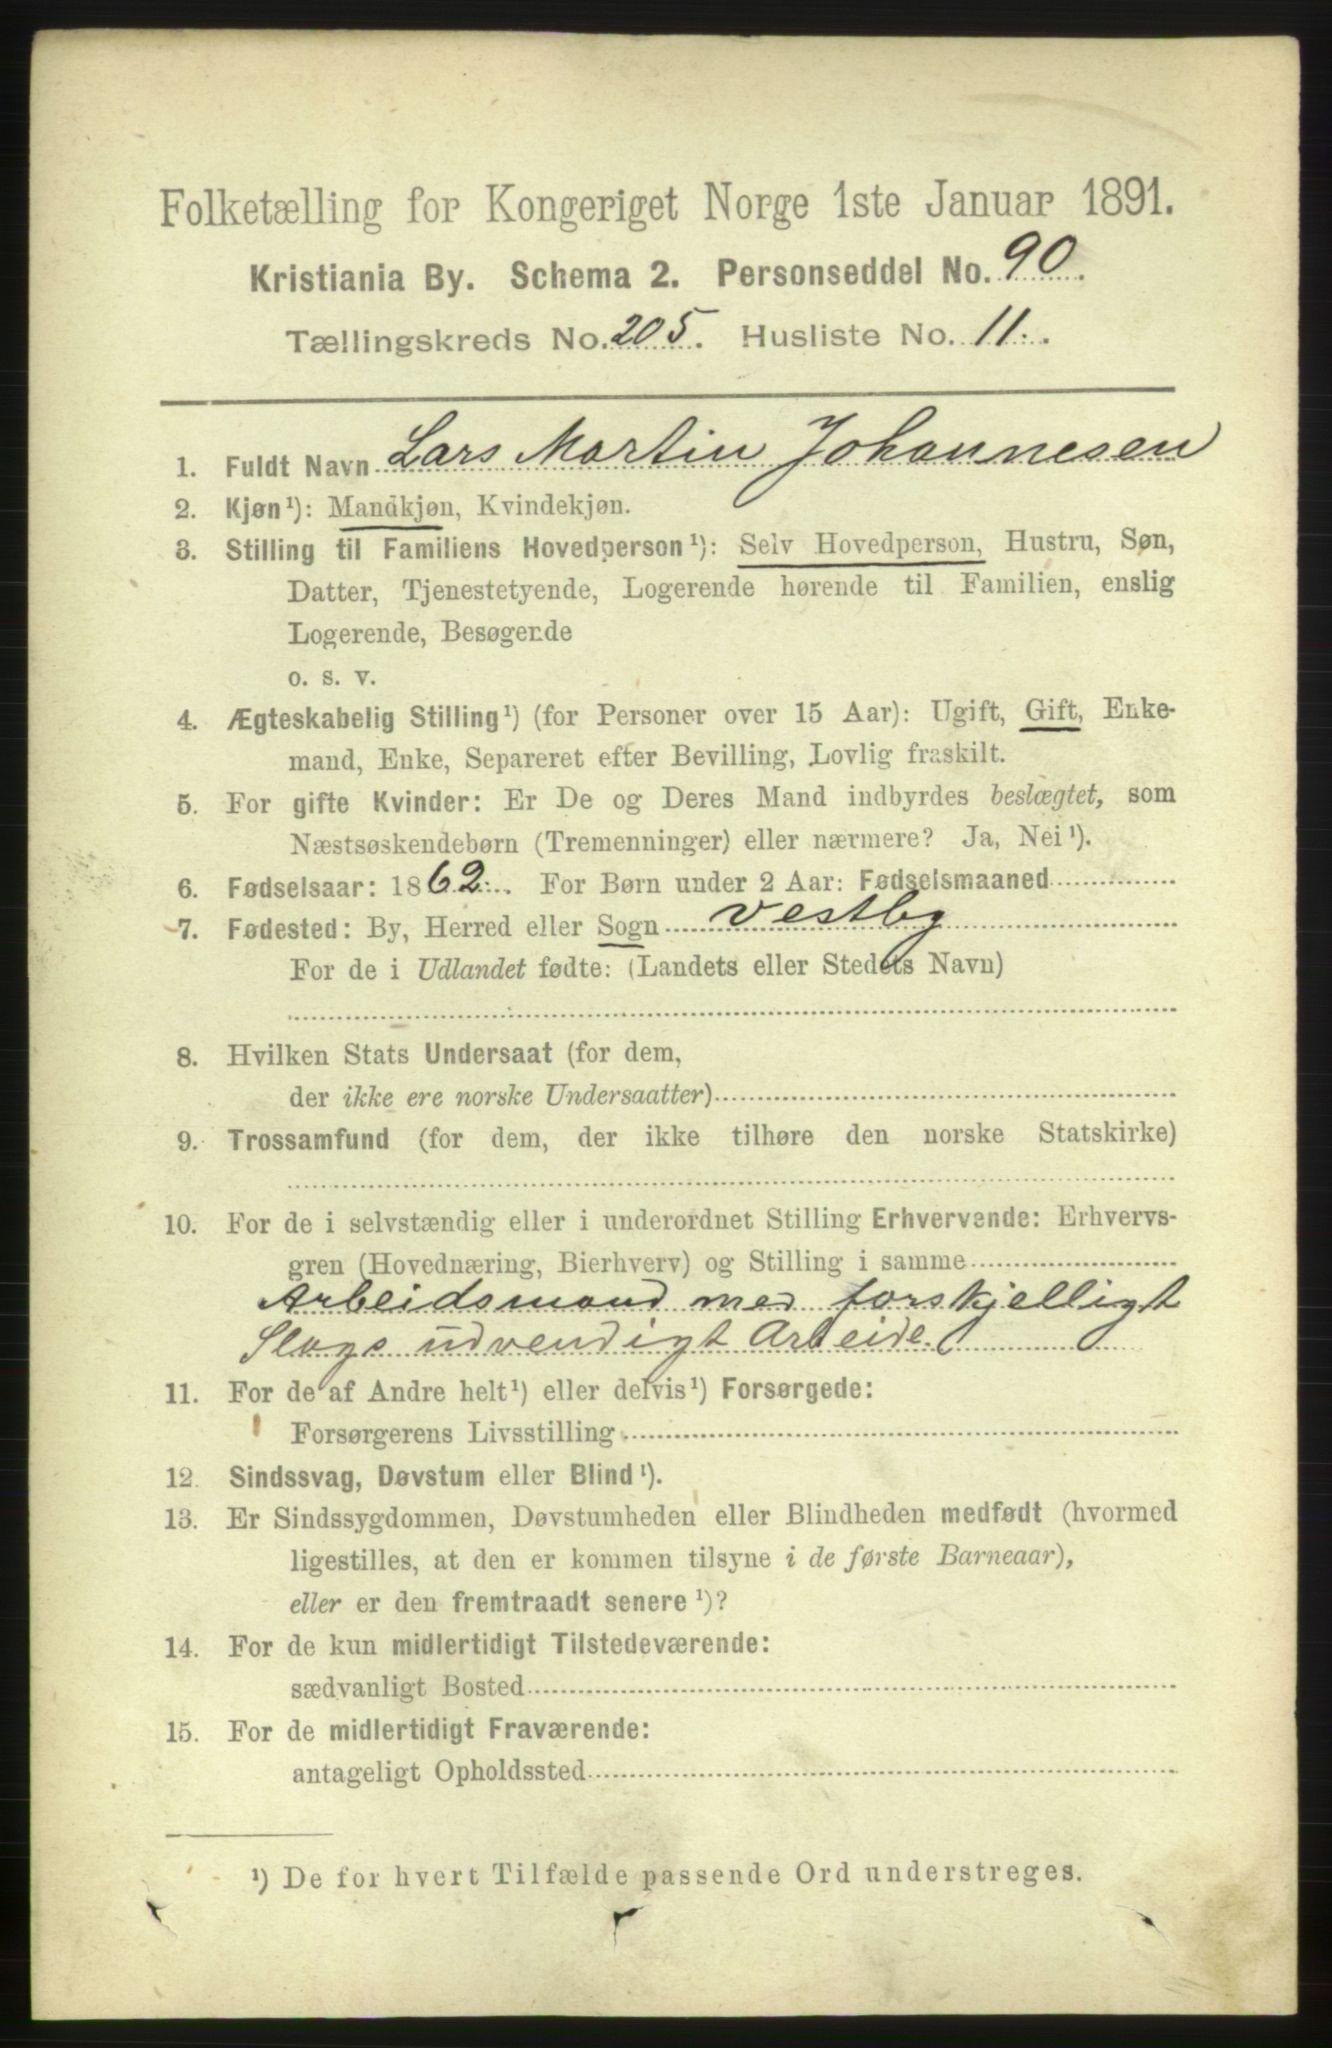 Folketælling for Kongeriget Norge 1ste Januar 1891.
Kristiania By. Schema 2. Personseddel No. 90.
Tællingskreds No. 205. Husliste No. 11.
1. Fuldt Navn Lars Martin Johannesen
2. Kjøn¹): Mandkjøn, Kvindekjøn.
3. Stilling til Familiens Hovedperson¹): Selv Hovedperson, Hustru, Søn,
Datter, Tjenestetyende, Logerende hørende til Familien, enslig
Logerende, Besøgende
o. s. v.
4. Ægteskabelig Stilling¹) (for Personer over 15 Aar): Ugift, Gift, Enke-
mand, Enke, Separeret efter Bevilling, Lovlig fraskilt.
5. For gifte Kvinder: Er De og Deres Mand indbyrdes beslægtet, som
Næstsøskendebørn (Tremenninger) eller nærmere? Ja, Nei¹).
6. Fødselsaar: 1862. For Børn under 2 Aar: Fødselsmaaned
7. Fødested: By, Herred eller Sogn Vestby
For de i Udlandet fødte: (Landets eller Stedets Navn)
8. Hvilken Stats Undersaat (for dem,
der ikke ere norske Undersaatter)
9. Trossamfund (for dem, der ikke tilhøre den norske Statskirke)
10. For de i selvstændig eller i underordnet Stilling Erhvervende: Erhvervs-
gren (Hovednæring, Bierhverv) og Stilling i samme
Arbeidsmand med forskjelligt
Slags udvendigt Arbeide.
11. For de af Andre helt¹) eller delvis¹) Forsørgede:
Forsørgerens Livsstilling
12. Sindssvag, Døvstum eller Blind¹).
13. Er Sindssygdommen, Døvstumheden eller Blindheden medfødt (hvormed
ligestilles, at den er kommen tilsyne i de første Barneaar),
eller er den fremtraadt senere¹)?
14. For de kun midlertidigt Tilstedeværende:
sædvanligt Bosted
15. For de midlertidigt Fraværende:
antageligt Opholdssted
¹) De for hvert Tilfælde passende Ord understreges.